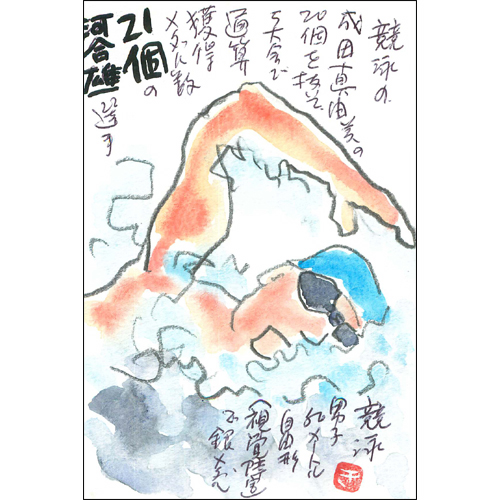 競泳の
成田真由美の
20個を抜き
5大会で
通算
獲得
メダル数
21個の
河合雄選手
競泳
男子
50メートル
自由形
(視覚障害)
で銀メダル